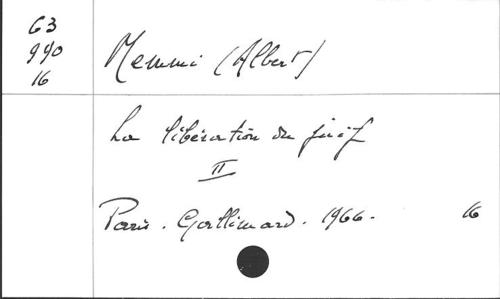 G3
990
16
Memmi (Albert)
La libération du juif
II
Paris. Gallimard. 1966. 16